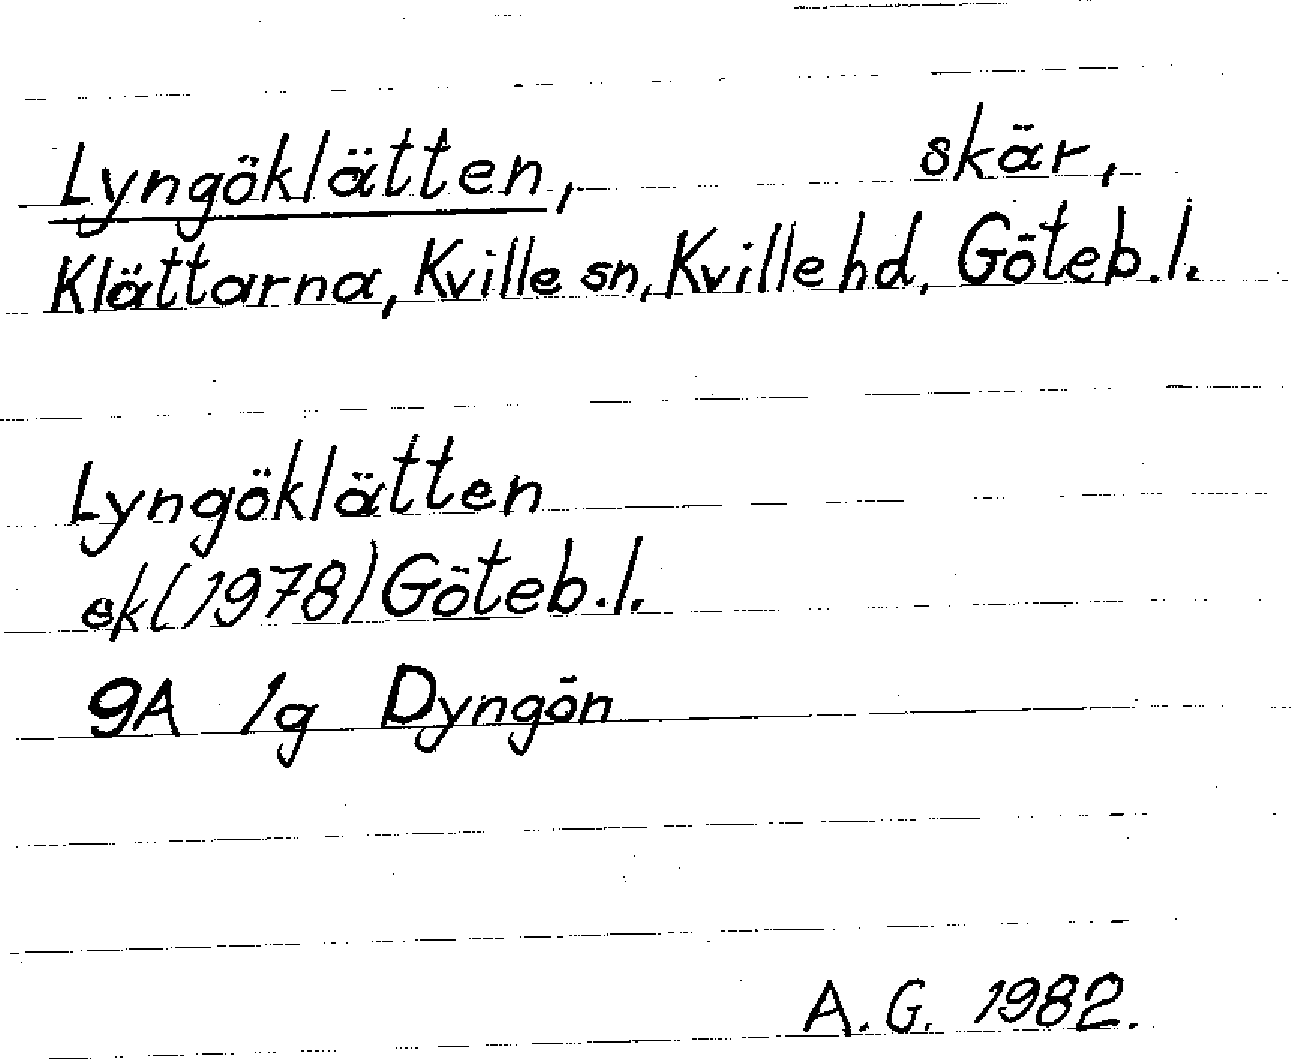 Lyngöklätten, skär,
Klättarna, Kville sn, Kville hd, Göteb.l.
Lyngöklätten
ek(1978) Göteb.l.
9A 1g Dyngön
A.G. 1982.